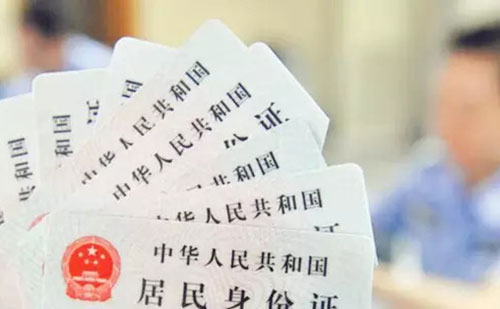 中华人民共和国
中华人民共和国
份证
共和国
中华人民共和国
中华人民共和国
居民身份证